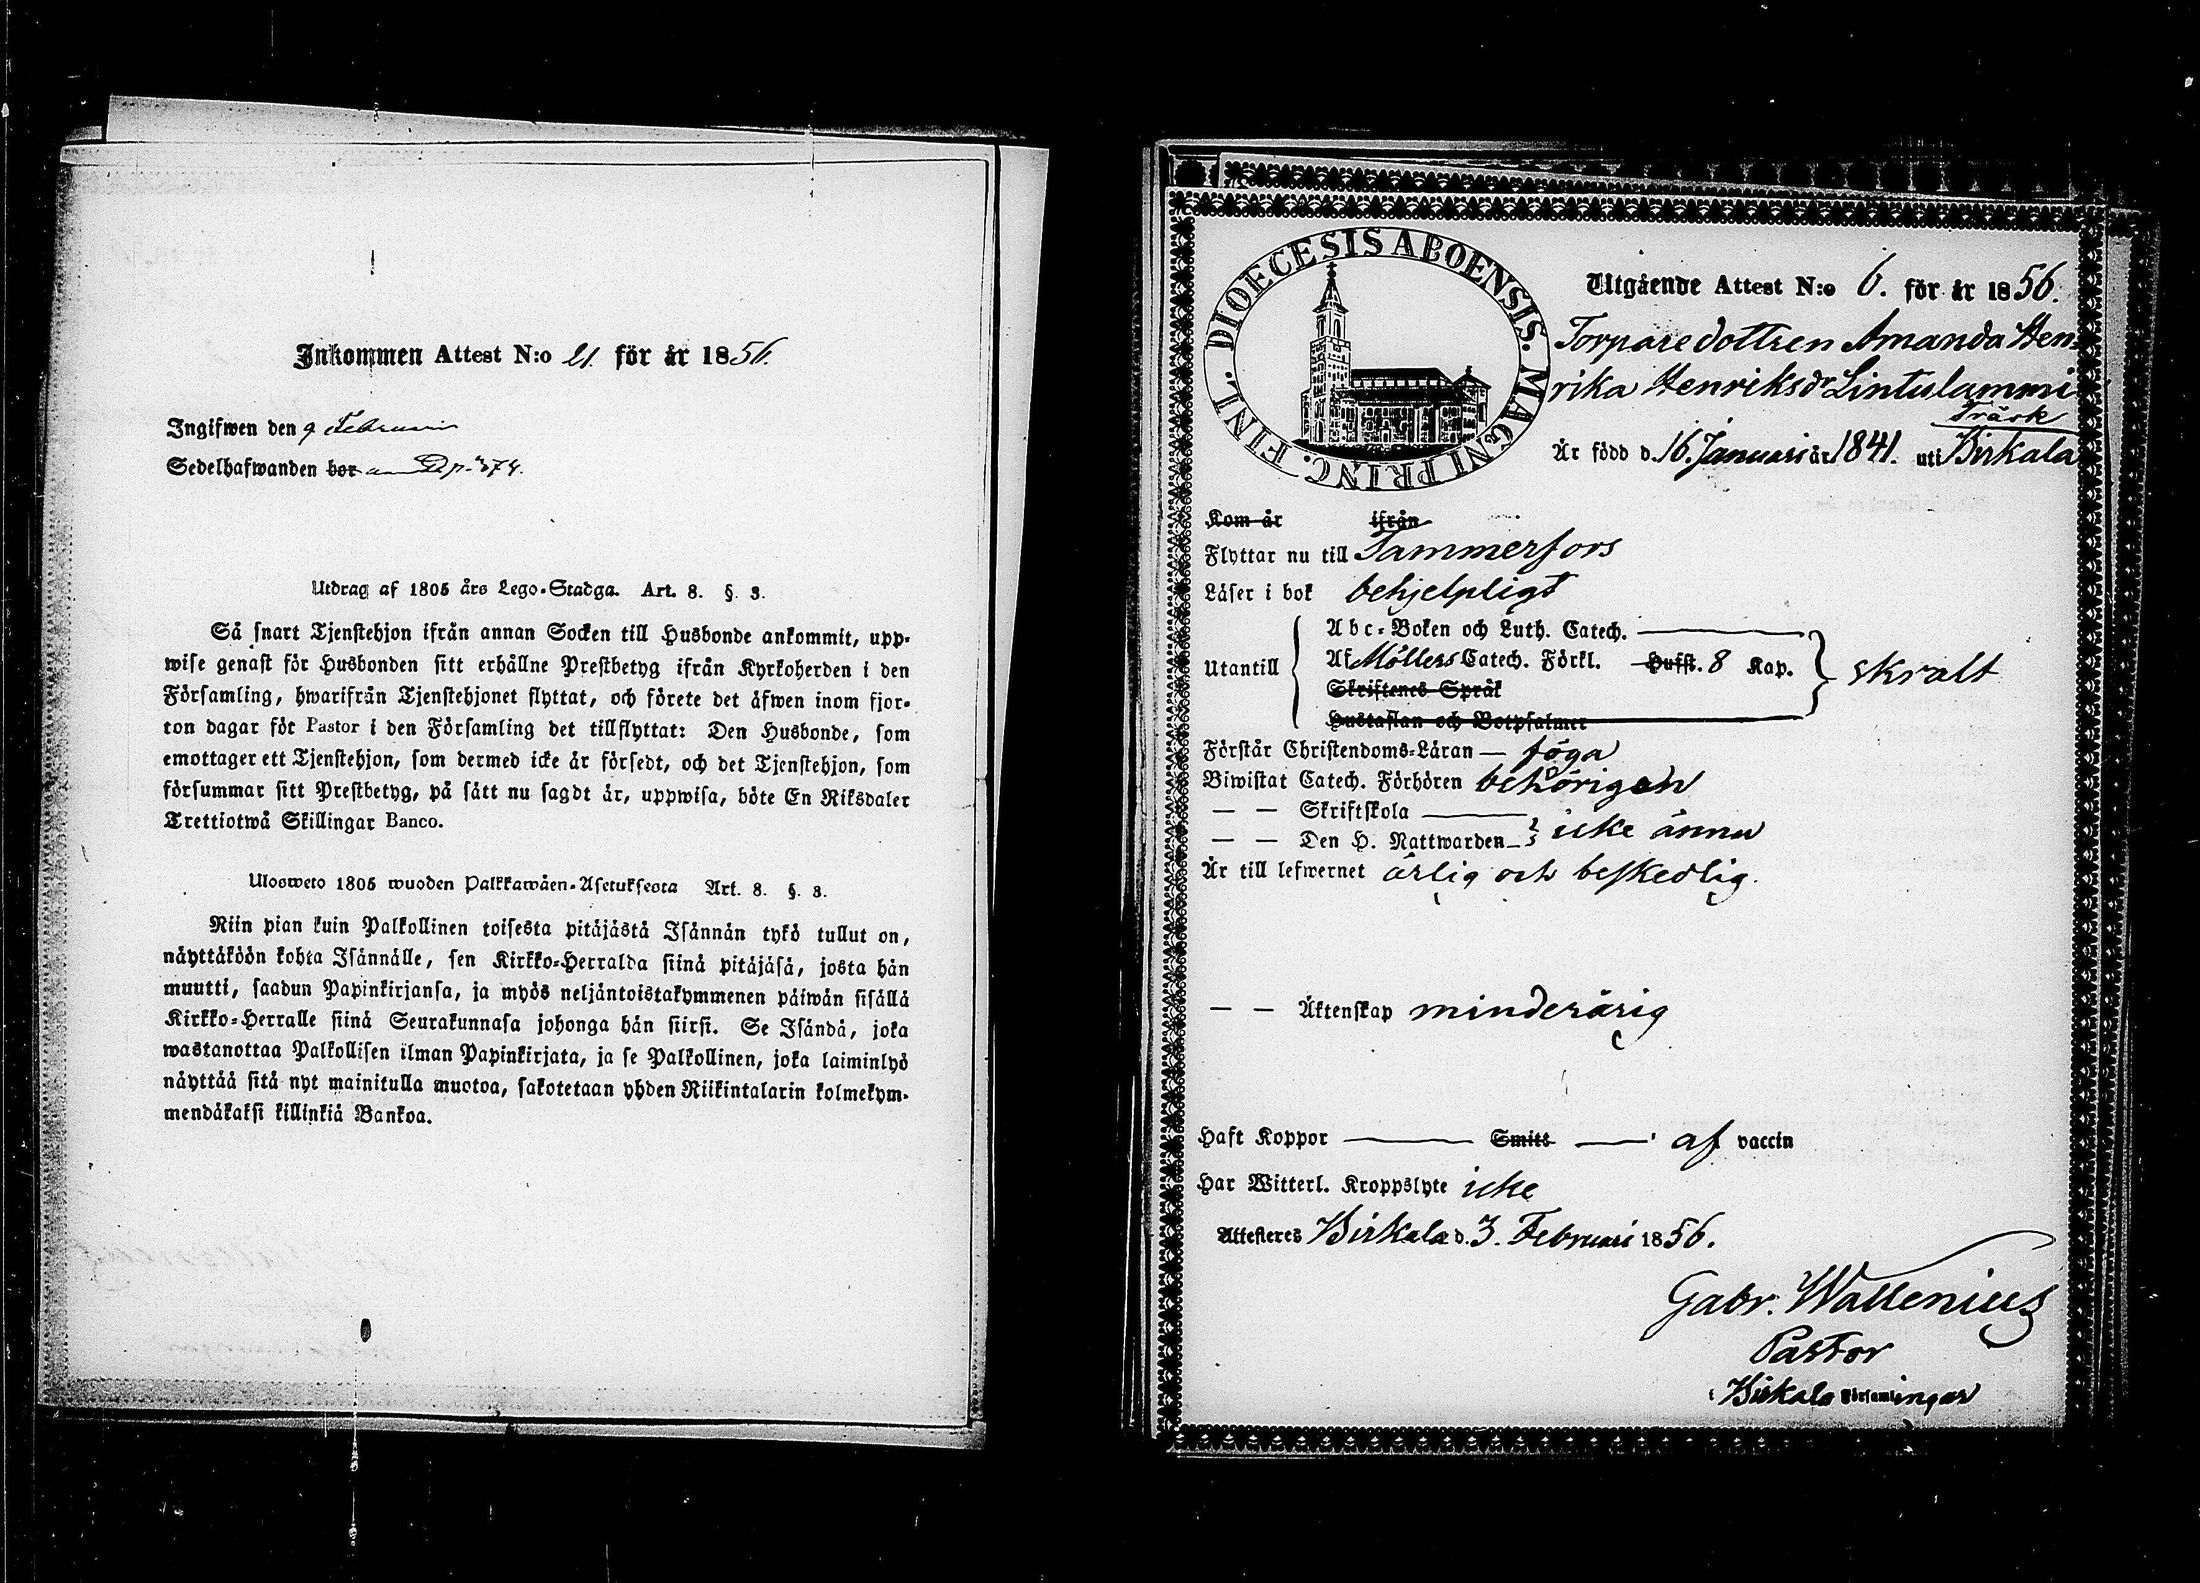 Inkommen Attest N:o 21. för år 1856.
Ingifwen den 9 Februari
Sedelhafwanden bor
Utdrag af 1805 års Lego-Stadga. Art. 8. §. 3.
Så snart Tjenstehjon ifrån annan Socken till Husbonde ankommit, upp-
wise genast för Husbonden sitt erhållne Prestbetyg ifrån Kyrkoherden i den
Församling, hwarifrån Tjenstehjonet flyttat, och förete det äfwen inom fjor-
ton dagar föt Pastor i den Församling det tillflyttat: Den Husbonde, som
emottager ett Tjenstehjon, som dermed icke är försedt, och det Tjenstehjon, som
försummar sitt Prestbetyg, på sätt nu sagdt är, uppwisa, böte En Riksdaler
Trettiotwå Skillingar Banco.
Ulosweto 1805 wuoden Palkkawäen-Asetuksesta Art. 8. §. 3.
Niin pian kuin Palkollinen toisesta pitäjästä Isännän tykö tullut on,
näyttäköön kohta Isännälle, sen Kirkko-Herralda siinä pitäjäsä, josta hän
muutti, saadun Papinkirjansa, ja myös neljäntoistakymmenen päiwän sisällä
Kirkko-Herralle siinä Seurakunnasa johonga hän siirsi. Se Isändä, joka
wastanottaa Palkollisen ilman Papinkirjata, ja se Palkollinen, joka laiminlyö
näyttää sitä nyt mainitulla muotoa, sakotetaan yhden Riikintalarin kolmekym-
mendäkaksi killinkiä Bankoa.
DIOECESIS ABOENSIS. MAGNI PRINC. FINL.
Utgående Attest N:o 6. för år 1856.
Torparedottren Amanda Hen-
rika Henriksdr Lintulammi
Träsk
Är född d. 16. Januari år 1841. uti Birkala
Kom år ifrån
Flyttar nu till Tammerfors
Läser i bok behjelpligt
Utantill
Abc-Boken och Luth. Catech.
Af Möllers Catech. Förkl. Hufst. 8 Kap. skralt
Skriftenes Språk
Hustaflan och Botpsalmer
Förstår Christendoms-Läran — föga
Biwistat Catech. Förhören behörigen
— — Skriftskola
— — Den H. Nattwarden — icke ännu
Är till lefwernet ärlig och beskedlig.
— — Äktenskap minderårig
Haft Koppor Smitt af vaccin
Har Witterl. Kroppslyte icke
Attesteres Birkala d. 3. Februari 1856.
Gabr. Wallenius
Pastor
i Birkala Församlingar